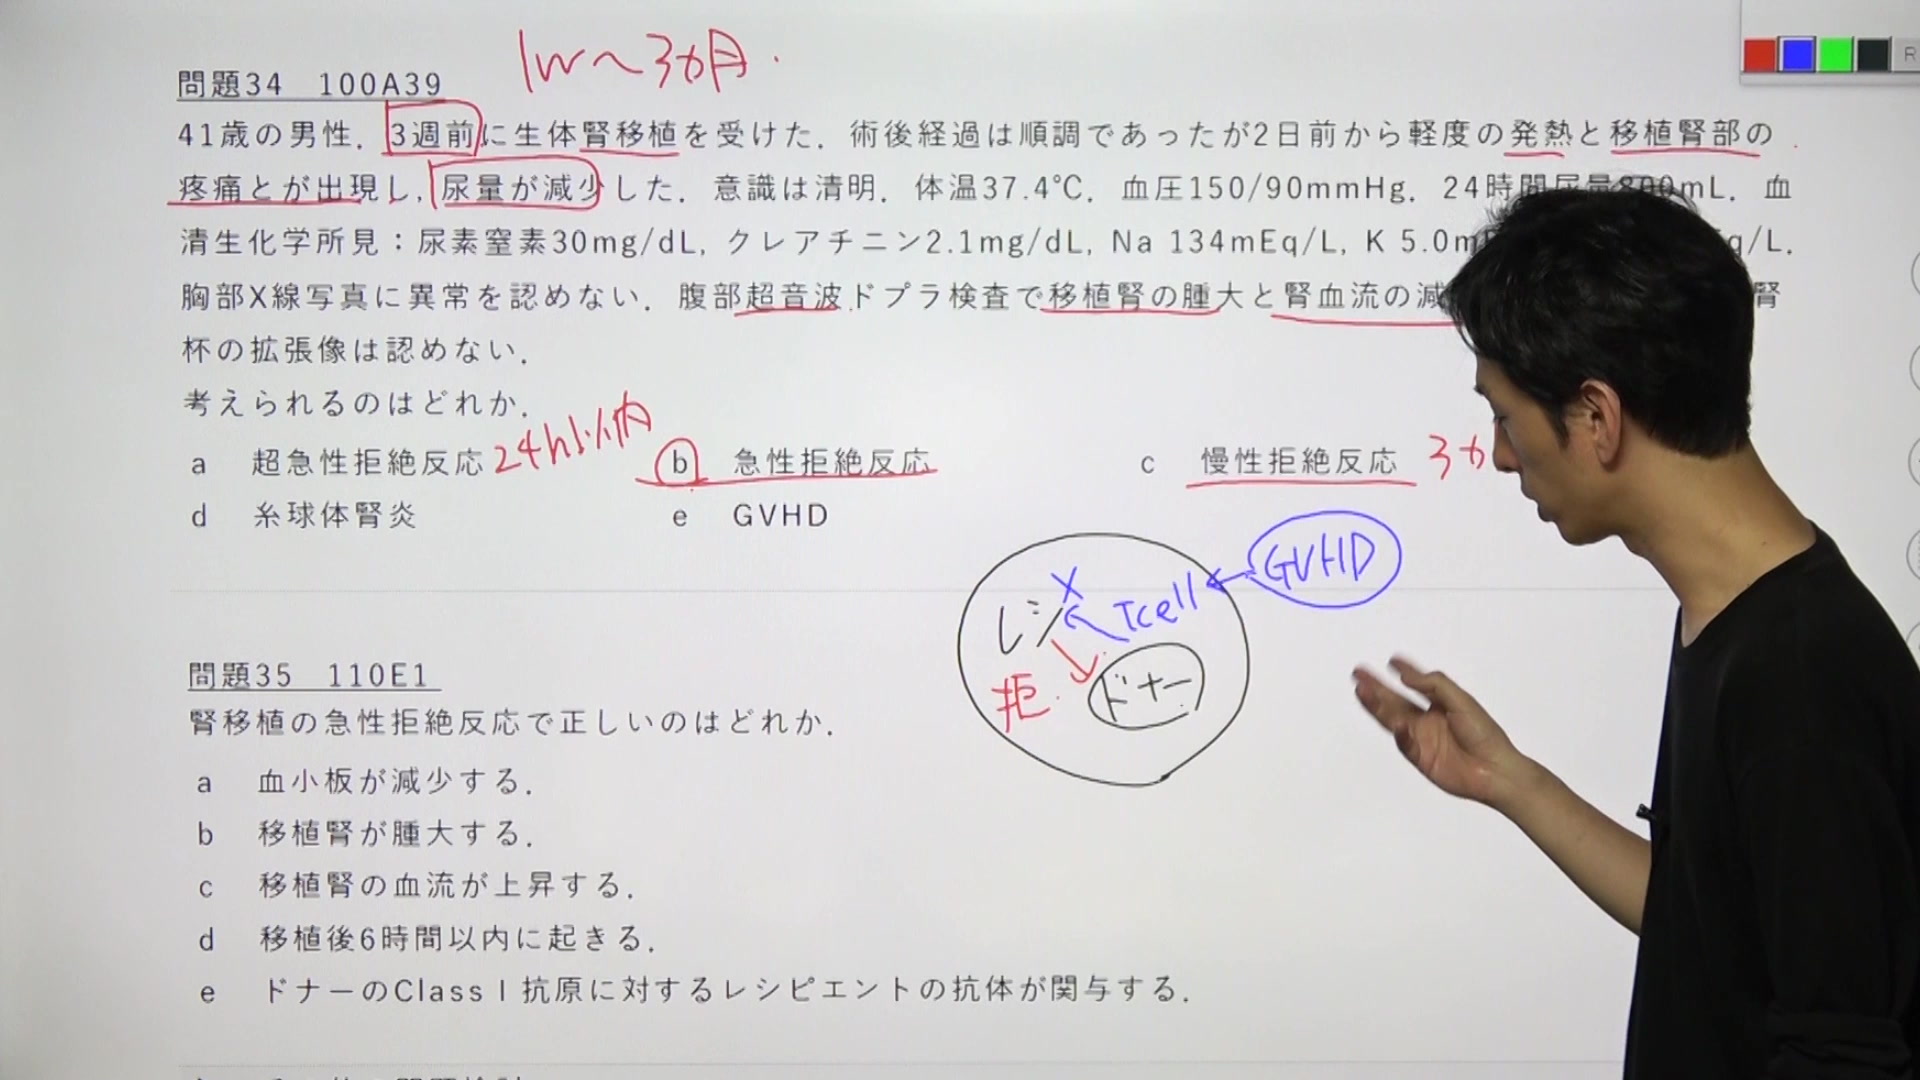 1w〜3カ月.
問題34 100A39
41歳の男性．3週前に生体腎移植を受けた．術後経過は順調であったが2日前から軽度の発熱と移植腎部の
疼痛とが出現し，尿量が減少した．意識は清明．体温37.4℃．血圧150/90mmHg．24時間尿量800mL．血
清生化学所見：尿素窒素30mg/dL, クレアチニン2.1mg/dL, Na 134mEq/L, K 5.0m q/L.
胸部X線写真に異常を認めない．腹部超音波ドプラ検査で移植腎の腫大と腎血流の減 腎
杯の拡張像は認めない．
考えられるのはどれか．
a 超急性拒絶反応 24h以内 b 急性拒絶反応 c 慢性拒絶反応 3カ
d 糸球体腎炎 e GVHD
GVHD
X
レシ Tcell
拒 ドナー
問題35 110E1
腎移植の急性拒絶反応で正しいのはどれか．
a 血小板が減少する．
b 移植腎が腫大する．
c 移植腎の血流が上昇する．
d 移植後6時間以内に起きる．
e ドナーのClass I 抗原に対するレシピエントの抗体が関与する．
R